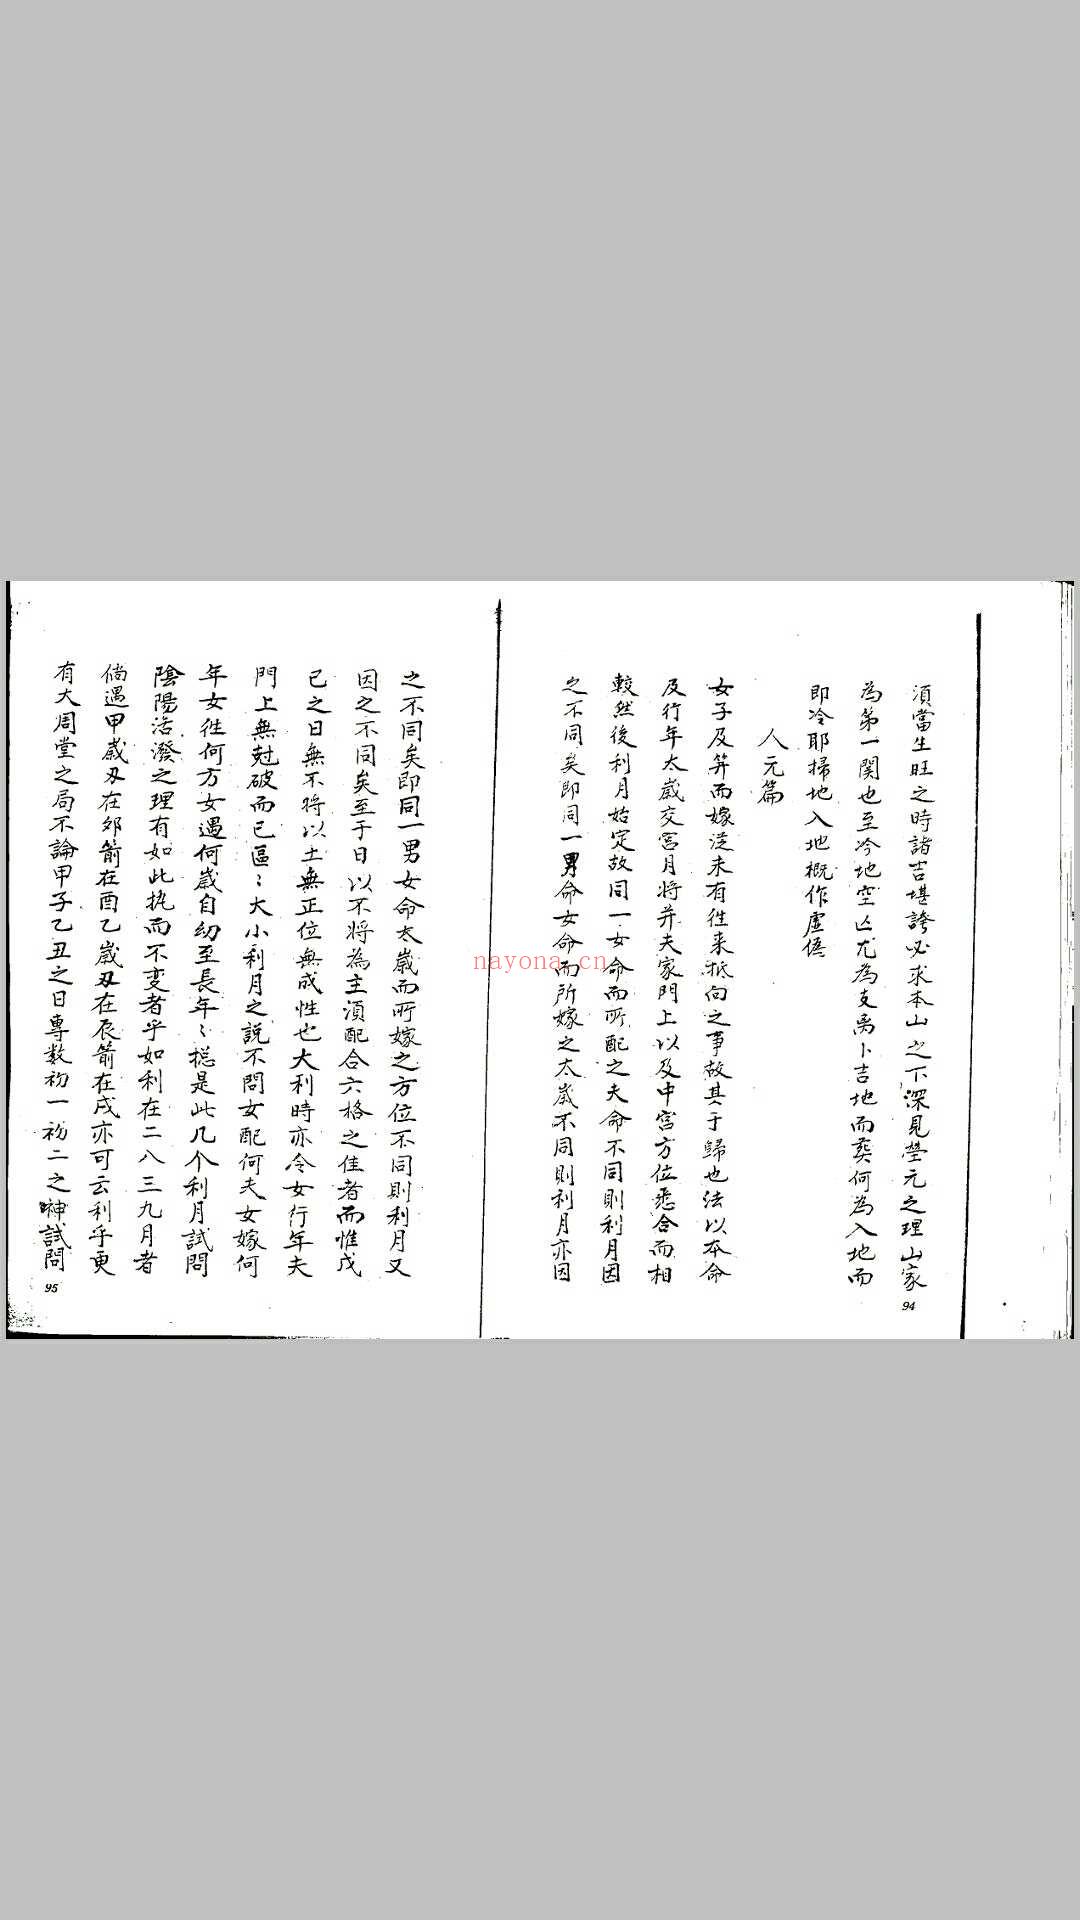 須當生旺之時諸吉堪誇必求本山之下深見塋元之理山家
為第一関也至冷地空亡尤為支离卜吉地而葬何為入地而
即冷耶掃地入地概作虛偽
人元篇
女子及笄而嫁從未有徃来抵向之事故其于歸也法以本命
及行年太歲交宮月將并夫家門上以及中宮方位悉合而相
較然後利月姑定故同一女命而所配之夫命不同則利月因
之不同矣即同一男命女命而所嫁之太歲不同則利月亦因
94
之不同矣即同一男女命太歲而所嫁之方位不同則利月又
因之不同矣至于日以不將為主須配合六格之佳者而惟戊
己之日無不将以土無正位無成性也大利時亦令女行年夫
門上無尅破而已區〻大小利月之說不問女配何夫女嫁何
年女徃何方女遇何歲自幼至長年〻摠是此几个利月試問
陰陽活潑之理有如此执而不变者乎如利在二八三九月者
倘遇甲歲刃在卯箭在酉乙歲刃在辰箭在戌亦可云利乎更
有大周堂之局不論甲子乙丑之日專数初一初二之 試問
95
nayona.cn